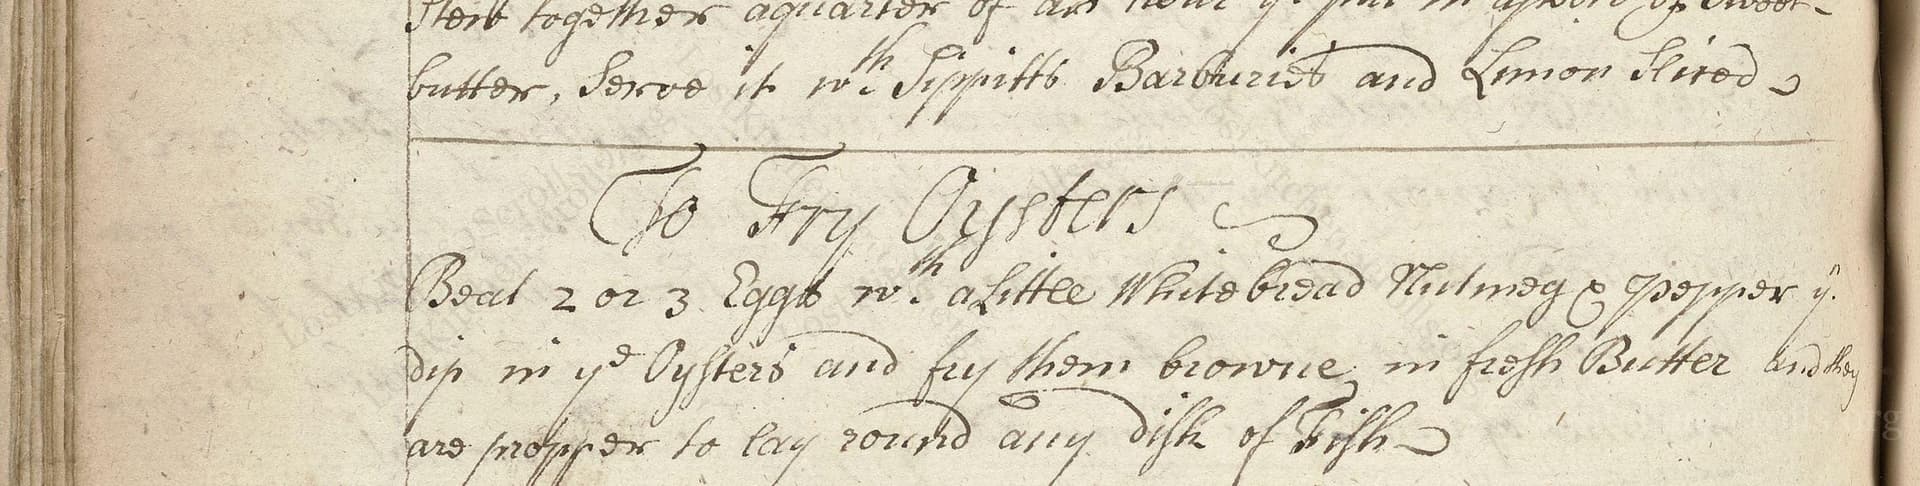 Stew together a quarter of an hour yn put in a peice of sweet-
butter, Serve it wth Sippitts Barburies and Limon Sliced
To Fry Oysters
Beat 2 or 3 Eggs wth a Little White bread Nutmeg & pepper yn
dip in ye Oysters and fry them browne, in fresh Butter and they
are propper to lay round any dish of Fish